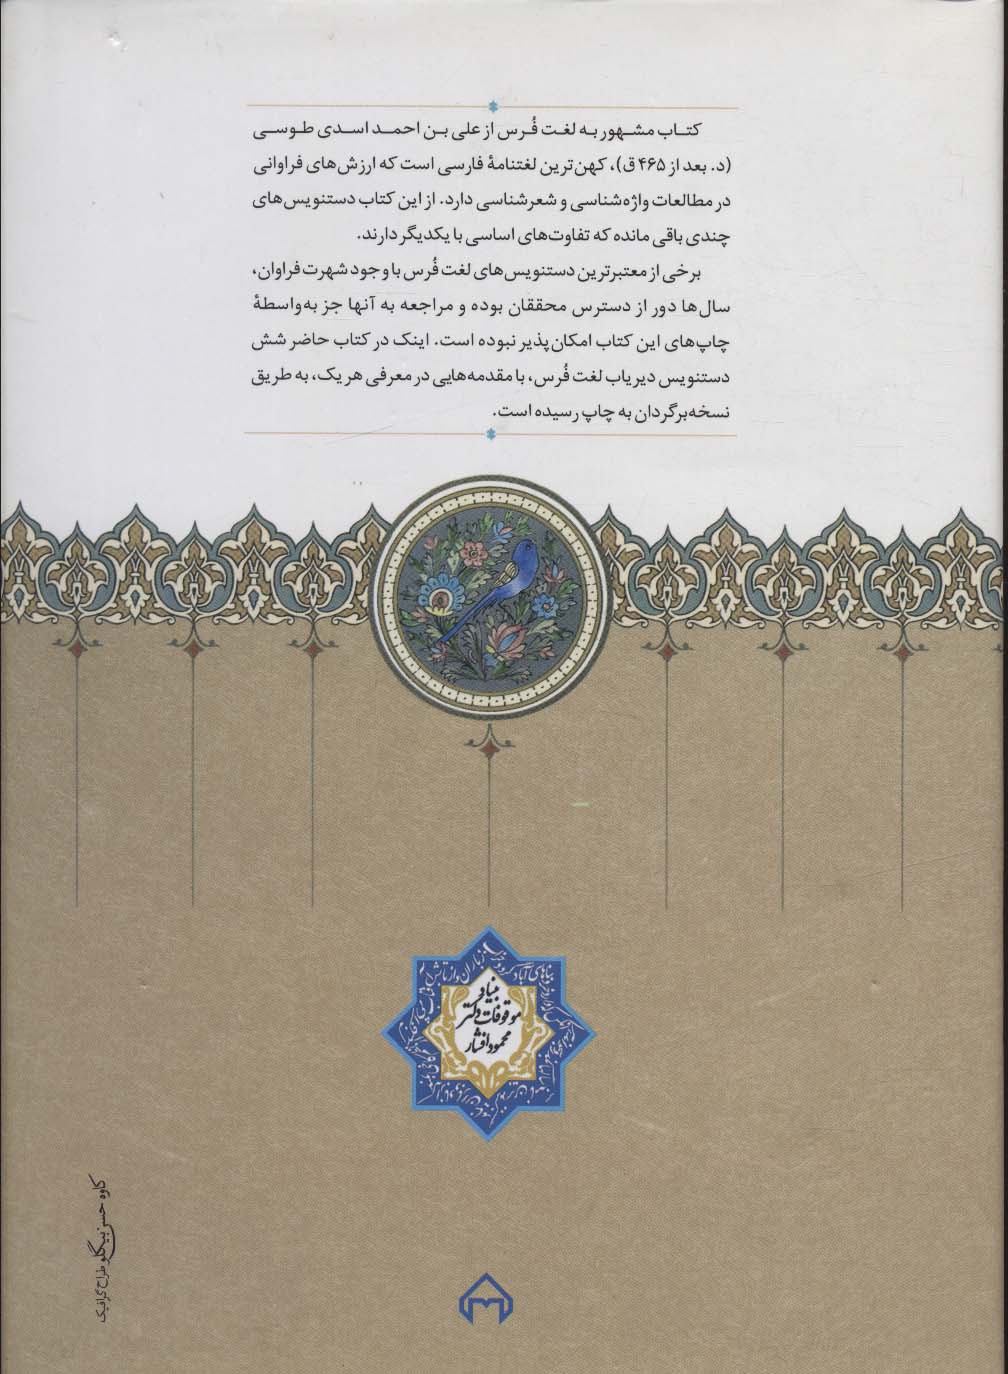 کتاب مشهور به لغت فُرس از علی بن احمد اسدی طوسی
(د. بعد از ۴۶۵ ق)، کهن‌ترین لغتنامهٔ فارسی است که ارزش‌های فراوانی
در مطالعات واژه‌شناسی و شعرشناسی دارد. از این کتاب دستنویس‌های
چندی باقی مانده که تفاوت‌های اساسی با یکدیگر دارند.
برخی از معتبرترین دستنویس‌های لغت فُرس با وجود شهرت فراوان،
سال‌ها دور از دسترس محققان بوده و مراجعه به آنها جز به‌واسطهٔ
چاپ‌های این کتاب امکان‌پذیر نبوده است. اینک در کتاب حاضر شش
دستنویس دیریاب لغت فُرس، با مقدمه‌هایی در معرفی هر یک، به طریق
نسخه‌برگردان به چاپ رسیده است.
بنیاد
موقوفات دکتر
محمود افشار
کاوه حسن بیگلو طراح گرافیک